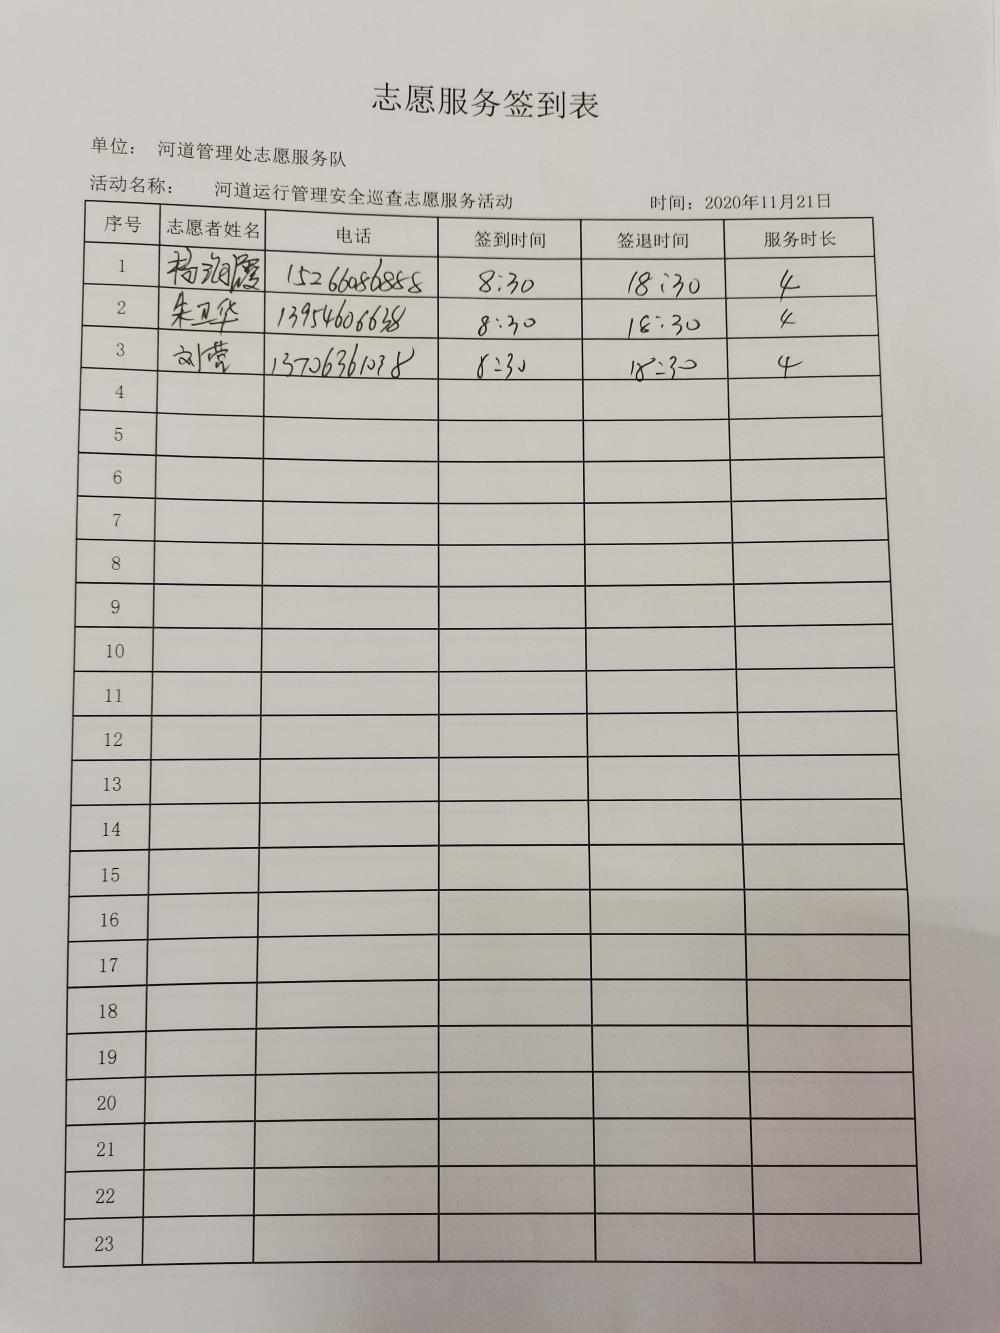 志愿服务签到表
单位： 河道管理处志愿服务队
活动名称： 河道运行管理安全巡查志愿服务活动 时间：2020年11月21日
序号 志愿者姓名 电话 签到时间 签退时间 服务时长
1 杨海霞 15266086888 8:30 18:30 4
2 朱卫华 13954606638 8:30 18:30 4
3 刘营 13706361038 8:30 18:30 4
4
5
6
7
8
9
10
11
12
13
14
15
16
17
18
19
20
21
22
23